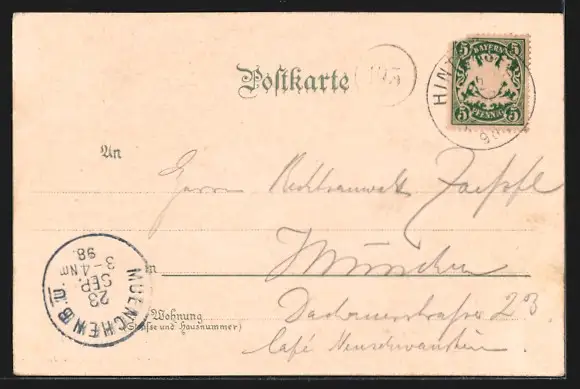 Postkarte
HIN
5 BAYERN 5
5 PFENNIG 5
98
An
Herrn Rechtsanwalt
in München
MUENCHEN B.
23
SEP.
3-4 Nm
98.
Wohnung Dachauerstraße 23
(Straße und Hausnummer)
Café Neuschwanstein.